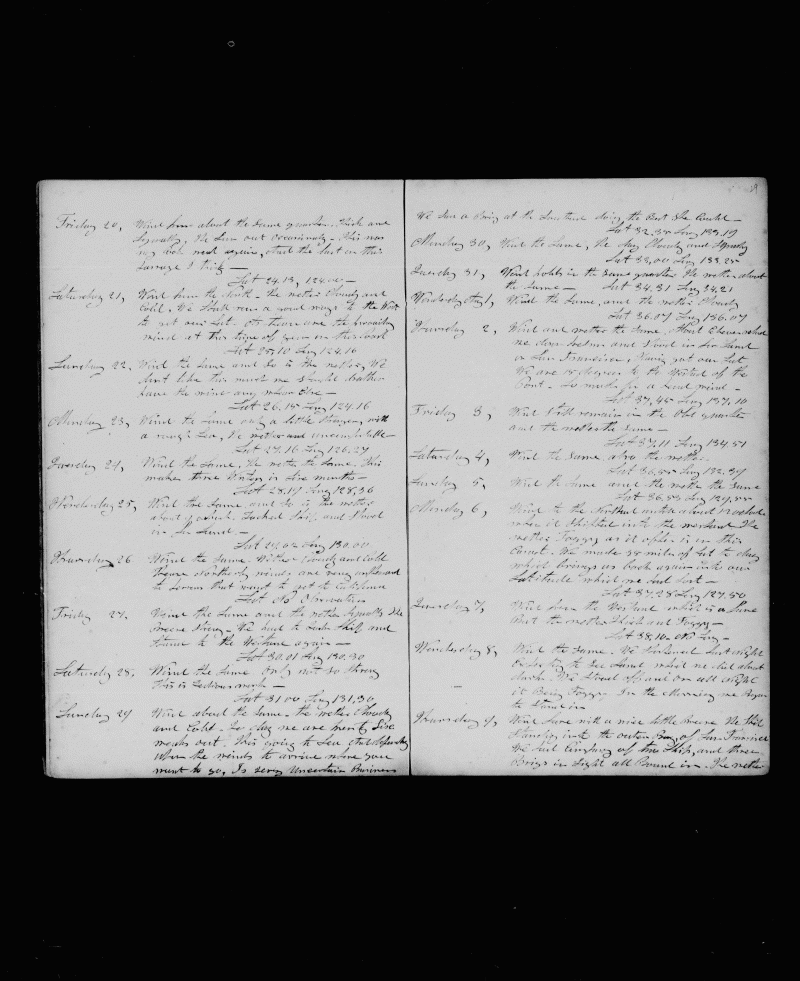 Friday 20, Wind from about the same quarter. Thick and
Squally, the Sun out occasionly. This was
again, that the last on this
I think —
Lat 24.13, 124.00 —
Saturday 21, Wind from the North. the wether Cloudy and
Cold, We Stand run a good ways to the West
to get our Lat. As these are the prevailing
winds at this time of year on this Coast
Lat 25,10 Long 124.16
Sunday 22, Wind the Same and So is the wether, We
dont like this much we Should rather
have the wind any whare Else —
Lat 26,15 Long 124.16
Monday 23, Wind the Same only a little Stronger, with
a rough Sea, the wether uncomfortable —
Lat 27.16 Long 126.27
Tuesday 24, Wind the Same, the wether the Same, this
makes three Winters in Six months —
Lat 28.19 Long 128,36
Wednesday 25, Wind the Same and So is the wether
about Tacked Ship and Stood
in for Land —
Lat 29,02 Long 130.00
Thursday 26 Wind the Same. Wether Cloudy and Cold
These Northerly winds are very unpleasant
to Persons that want to get to California
Lat No Observation
Friday 27. Wind the Same and the wether Squally the
Breeze Strong. We had to tack Ship and
Stand to the Westward again —
Lat 30.01 Long 130.30
Saturday 28. Wind the Same Only not so Strong
This is tedious work —
Lat 31.00 Long 131,30
Sunday 29 Wind about the Same. the wether Cloudy
and Cold. To day we are twenty Six
weeks out, This going to Sea and depending
upon the winds to arrive whare you
want to go, Is very Uncertain Business
29
We Saw a Brig at the Southard doing the Best She Could —
Lat 32.35 Long 133,19
Monday 30, Wind the Same, the day Cloudy and Squally
Lat 33,00 Long 133.25
Tuesday 31, Wind holds in the Same quarter. the wether about
the Same — Lat 34.31 Long 34,21
Wednesday 1, Wind the Same, and the wether Cloudy
Lat 36.07 Long 136.07
Thursday 2, Wind and wether the Same. About 2 o'clock
we Stood in for Land
or San Francisco, Having got our Lat
We are 15 degrees to the Westard of the
Port. So much for a head wind —
Lat 37,45 Long 137,10
Friday 3, Wind Still remain in the Old quarter
and the wether the Same —
Lat 37,11 Long 134.51
Saturday 4, Wind the Same also the wether —
Lat 36,55 Long 132,39
Sunday 5, Wind the Same and the wether the Same
Lat 36.53 Long 129,55
Monday 6, Wind to the Northard untill about 12 o'clock
when it Shifted into the Westard the
wether Foggy as it often is on this
Coast. We made 35 miles of Lat to day
which brings us back again into our
Latitude which we had lost —
Lat 37.28 Long 127.50
Tuesday 7, Wind from the Westard which is a fare
But the wether Thick and Foggy —
Lat 38,10. No Long —
Wednesday 8, Wind the Same. We last night
to See Land, which we did about
dark. We Stood off and on all night
it Being Foggy. In the Morning we Began
to Stand in
Thursday 9, Wind fare with a nice little Breeze We Still
Standing into the outer Bay of San Francisco
We had Company of two Ships, and three
Brigs in Sight all Bound in. the wether